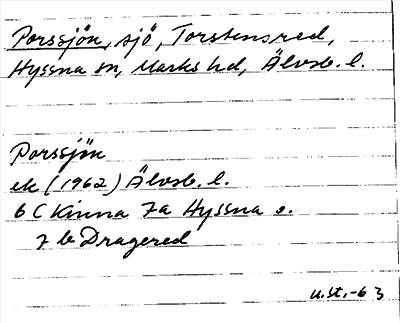 Porssjön, sjö, Torstensred,
Hyssna sn, Marks hd, Älvsb. l.
Porssjön
ek (1962) Älvsb. l.
6 C Kinna 7a Hyssna s.
7 b Dragered
u.st.-63